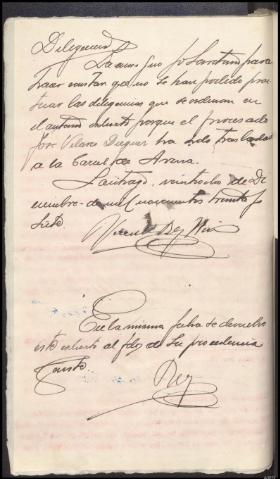 Diligencia
La anu yo el Secretario para
hacer constar que no se han podido prac
ticar las diligencias que se ordenan en
el anterior exhorto porque el procesado
Jose Vilares Dieguez ha sido trasladado
a la Carcel de Arzua.
Santiago, veintiocho de Di
ciembre de mil novecientos treinta y
siete.
En la misma fecha se devuelve
este exhorto al Jdo de su procedencia
Rey